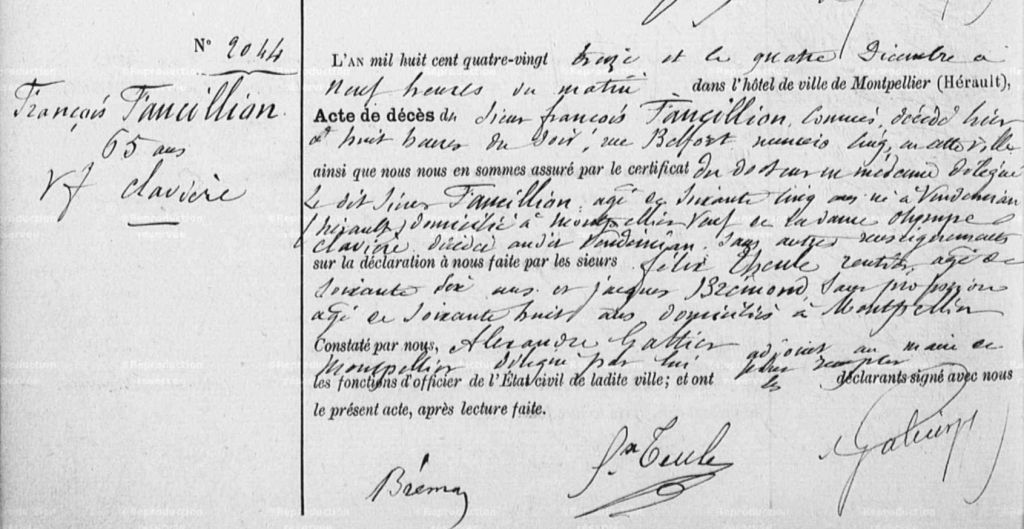 N° 2044
François Fancillion.
65 ans
Vf clavière
L'AN mil huit cent quatre-vingt treize et le quatre Décembre à
neuf heures du matin dans l'hôtel de ville de Montpellier (Hérault),
Acte de décès du Sieur françois Fancillion, Commis, décédé hier
à huit heures du soir, rue Belfort numéro cinq, en cette ville
ainsi que nous nous en sommes assuré par le certificat du docteur en médecine délégué
Le dit Sieur Fancillion, agé de soixante cinq ans né à Vendémian
(hérault) domicilié à montpellier Veuf de la dame olympe
clavière, décédée audit Vendémian. Sans autres renseignements
sur la déclaration à nous faite par les sieurs félix Theule rentier, agé de
soixante dix ans et jacques Brémond, sans profession
agé de soixante huit ans domiciliés à Montpellier
Constaté par nous, Alexandre Galtier adjoint au maire de
Montpellier délégué par lui pour remplir
les fonctions d'officier de l'État civil de ladite ville; et ont les déclarants signé avec nous
le présent acte, après lecture faite.